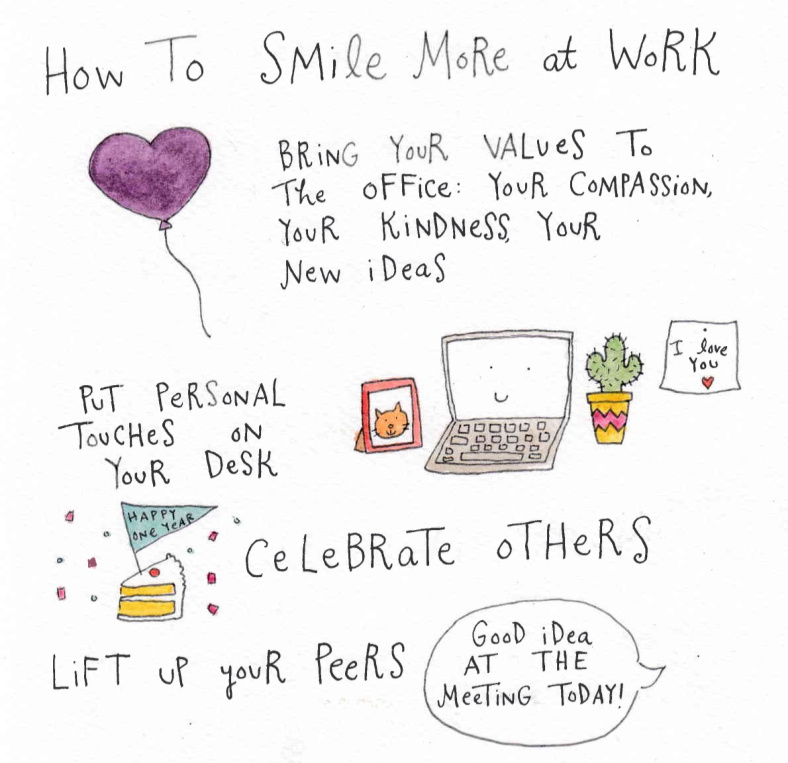 How To SMile MoRe at WoRK
BRiNG YouR VALueS To
The oFFice: YouR CoMPASSioN,
YouR KiNDNeSS, YouR
New iDeaS
I love
You
PuT PeRSoNAL
TouCHeS oN
YouR DeSK
HAPPY
oNe YeAR
CeLeBRaTe oTHeRS
LiFT uP youR PeeRS
GooD iDea
AT THE
MeeTiNG ToDAY!